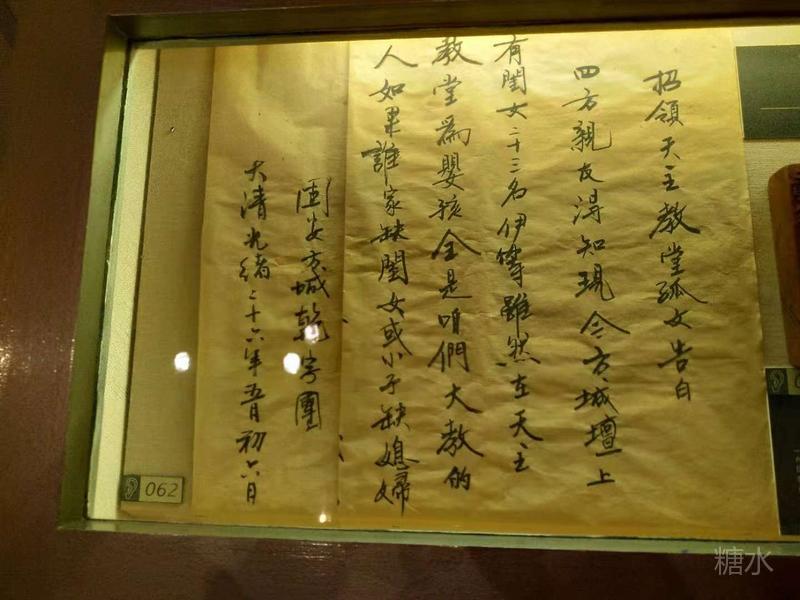 招領天主教堂孤女告白
四方親友得知現今方城壇上
有閨女二十三名伊等雖然在天主
教堂為嬰孩全是咱們大教的
人如果誰家缺閨女或小子缺媳婦
固安方城乾字團
大清光緒二十六年五月初六日
062
糖水